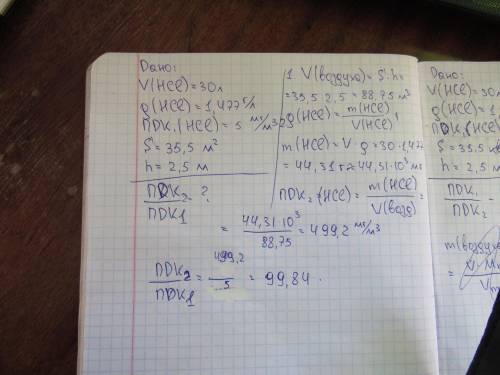 Дано:
V(HCl) = 30 л
ϱ(HCl) = 1,477 г/л
ПДК₁(HCl) = 5 мг/м³
S = 35,5 м²
h = 2,5 м
ПДК₂/ПДК1 - ?
1. V(воздуха) = S·h =
= 35,5·2,5 = 88,75 м³
2 ϱ(HCl) = m(HCl)/V(HCl)
m(HCl) = V·ϱ = 30·1,477
= 44,31 г = 44,31·10³ мг
ПДК₂(HCl) = m(HCl)/V(возд) =
= 44,31·10³/88,75 = 499,2 мг/м³
ПДК₂/ПДК1 = 499,2/5 = 99,84.
Дано:
V(HCl) = 30 л
ϱ(HCl) = 1,
ПДК₁(HCl)
S = 35,5 м
h = 2,5 м
ПДК₁/ПДК₂ -
m(воздуха)
= V·M/Vm